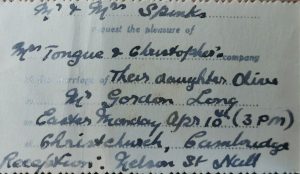 Mr & Mrs Spinks
request the pleasure of
Mrs Tongue & Christopher's company
marriage of Their daughter Olive
Mr Gordon Long
Easter Monday Apr 10th (3 PM)
Christchurch, Cambridge
Reception: Nelson St Hall